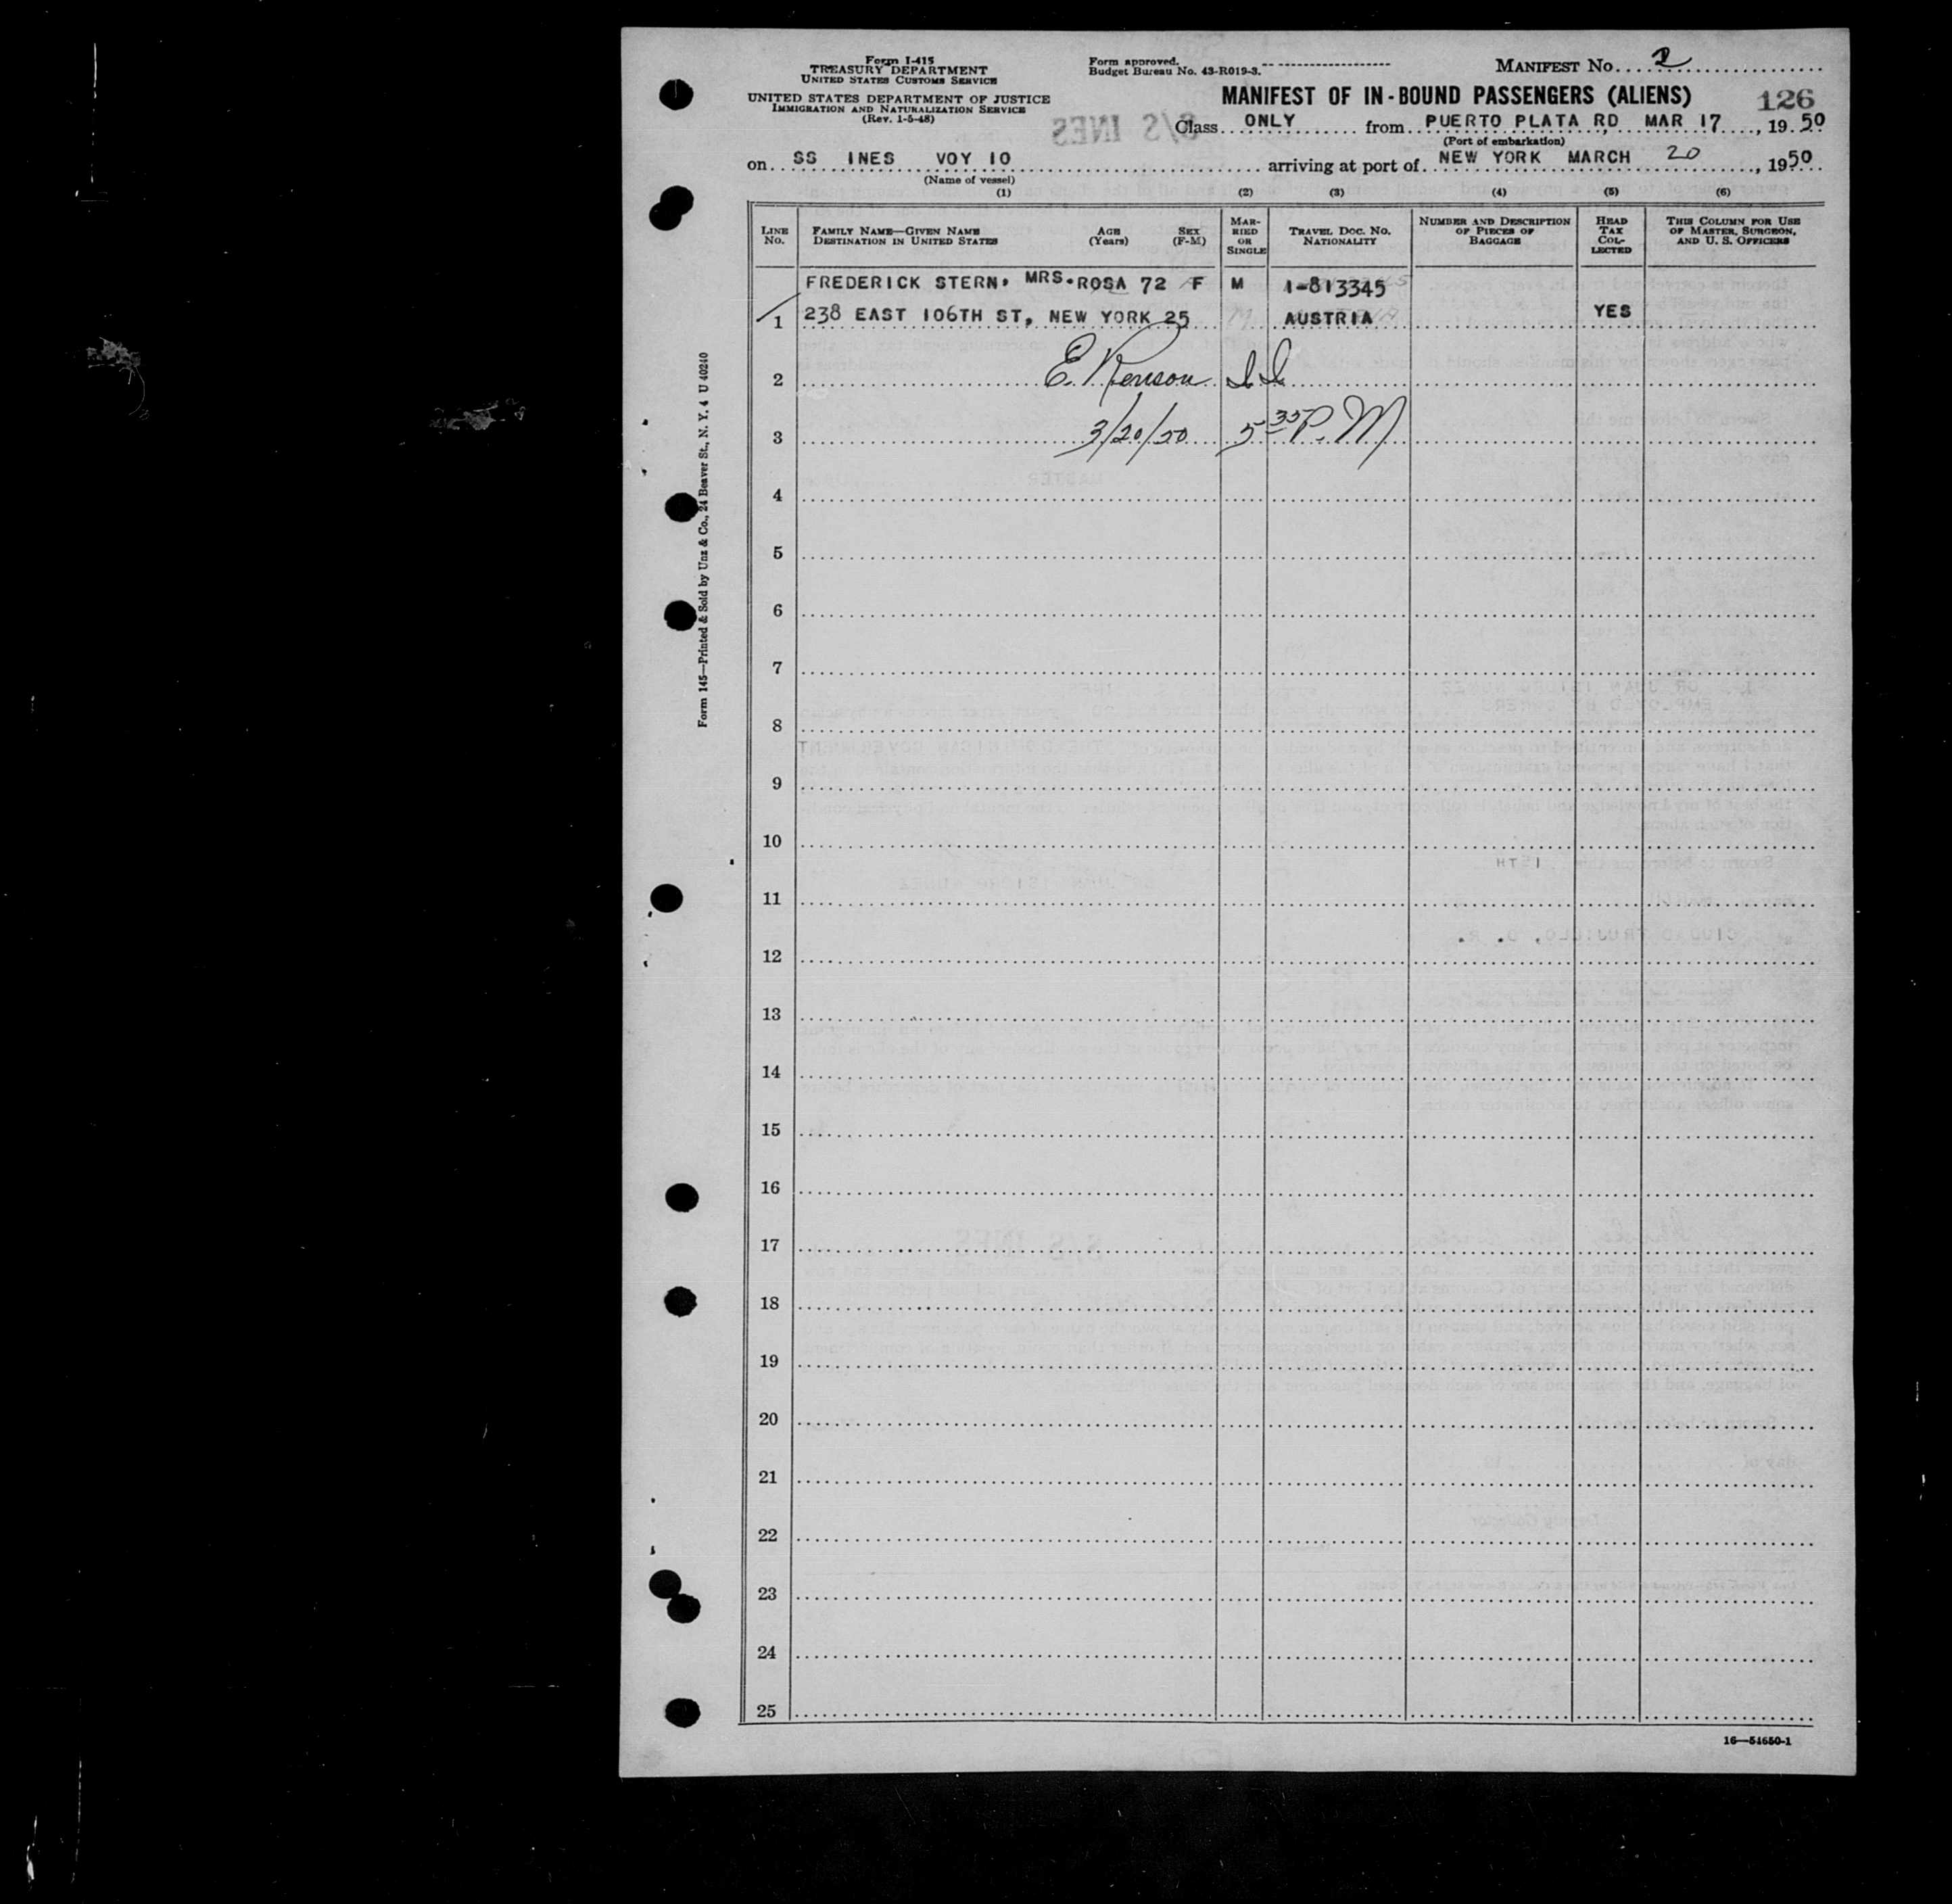 Form I-415
TREASURY DEPARTMENT
UNITED STATES CUSTOMS SERVICE
UNITED STATES DEPARTMENT OF JUSTICE
IMMIGRATION AND NATURALIZATION SERVICE
(Rev. 1-5-48)
Form approved.
Budget Bureau No. 43-R019-3.
MANIFEST NO. 2
MANIFEST OF IN-BOUND PASSENGERS (ALIENS)
126
S/S INES
Class ONLY from PUERTO PLATA RD MAR 17, 1950
(Port of embarkation)
on SS INES VOY 10 arriving at port of NEW YORK MARCH 20, 1950
(Name of vessel)
(1) (2) (3) (4) (5) (6)
LINE NO. FAMILY NAME—GIVEN NAME DESTINATION IN UNITED STATES AGE (Years) SEX (F-M) MARRIED OR SINGLE TRAVEL DOC. NO. NATIONALITY NUMBER AND DESCRIPTION OF PIECES OF BAGGAGE HEAD TAX COLLECTED THIS COLUMN FOR USE OF MASTER, SURGEON, AND U. S. OFFICERS
FREDERICK STERN, MRS. ROSA 72 F M I-813345
1 238 EAST 106TH ST, NEW YORK 25 AUSTRIA YES
2 E.
3 3/20/50 5 35 P.M
4
5
6
7
8
9
10
11
12
13
14
15
16
17
18
19
20
21
22
23
24
25
16—54650-1
Form 145—Printed & Sold by Unz & Co., 24 Beaver St., N. Y. 4 U 40240